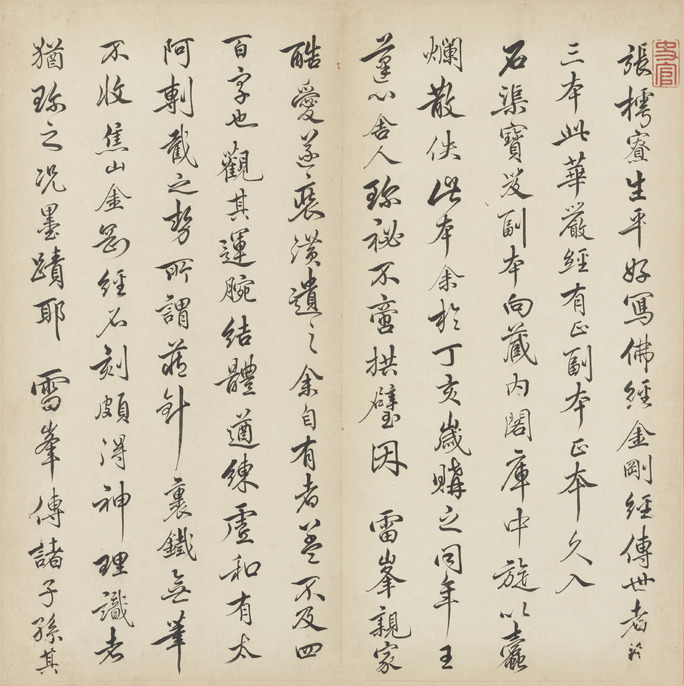 史官
張樗寮生平好寫佛經金剛經傳世者計
三本此華嚴經有正副本正本久入
石渠寶笈副本向藏內閣庫中旋以蠹
爛散佚此本余於丁亥歲購之同年王
蓮心舍人珍祕不啻拱璧因雷峯親家
酷愛遂襲潢遺之余自有者並不及四
百字也觀其運腕結體遒練虛和有太
阿剸截之勢所謂藏針裹鐵無筆
不收焦山金剛經石刻頗得神理識者
猶珍之況墨蹟耶雷峯傳諸子孫其